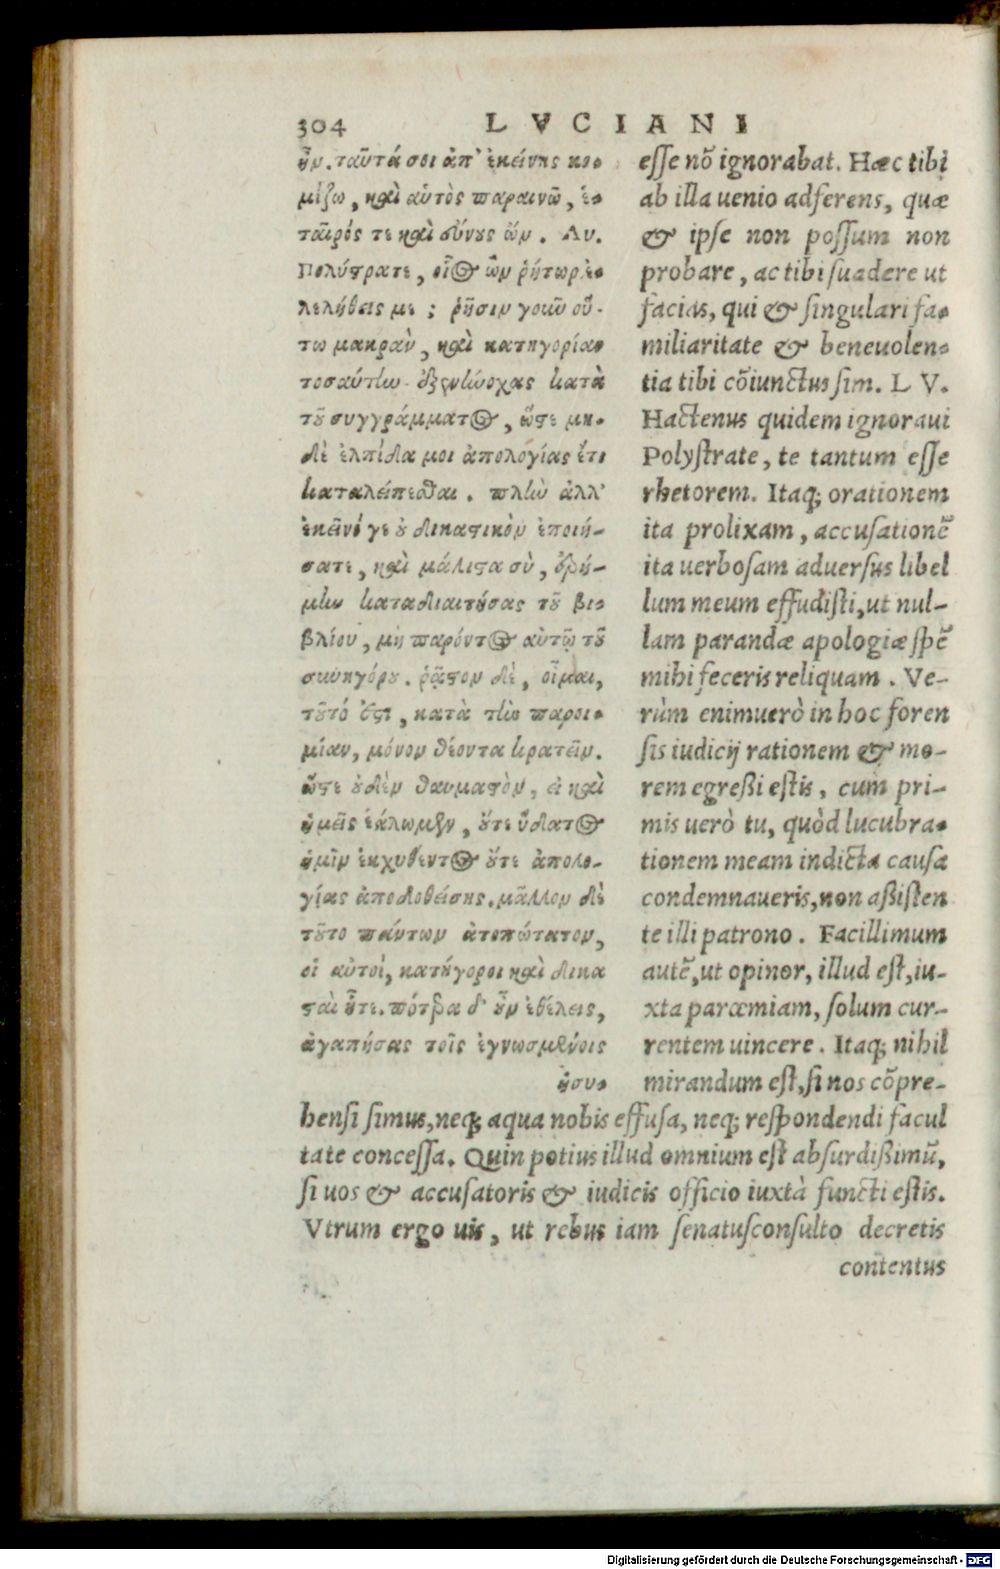 304 LVCIANI
ἦν. ταῦτά σοι ἀπ' ἐκείνης κο-
μίζω, καὶ αὐτὸς παραινῶ, ἑ-
ταῖρός τε καὶ εὔνους ὤν. Λυ.
Πολύστρατε, οἷος ὢν ῥήτωρ ἐ-
λελήθεις με; ῥῆσιν γοῦν οὕ-
τω μακρὰν, καὶ κατηγορίαν
τοσαύτην διεξελήλυθας κατὰ
τοῦ συγγράμματος, ὥστε μη-
δὲ ἐλπίδα μοι ἀπολογίας ἔτι
καταλείπεσθαι. πλὴν ἀλλ'
ἐκεῖνό γε οὐ δικαστικὸν ἐποιή-
σατε, καὶ μάλιστα σὺ, ἐρή-
μην καταδιαιτήσας τοῦ βι-
βλίου, μὴ παρόντος αὐτῷ τοῦ
συνηγόρου. ῥᾷστον δὲ, οἶμαι,
τοῦτό ἐστι, κατὰ τὴν παροι-
μίαν, μόνον θέοντα κρατεῖν.
ὥστε οὐδὲν θαυμαστὸν, εἰ καὶ
ἡμεῖς ἑάλωμεν, οὔτε ὕδατος
ἡμῖν ἐκχυθέντος οὔτε ἀπολο-
γίας ἀποδοθείσης. μᾶλλον δὲ
τοῦτο πάντων ἀτοπώτατον,
οἱ αὐτοὶ, κατήγοροι καὶ δικα
σταὶ ἦτε. πότερα δ' οὖν ἐθέλεις,
ἀγαπήσας τοῖς ἐγνωσμένοις
ἡσυ-
esse nõ ignorabat. Hæc tibi
ab illa uenio adferens, quæ
& ipse non possum non
probare, ac tibi suadere ut
facias, qui & singulari fa-
miliaritate & beneuolen-
tia tibi cõiunctus sim. L V.
Hactenus quidem ignoraui
Polystrate, te tantum esse
rhetorem. Itaq; orationem
ita prolixam, accusationẽ
ita uerbosam aduersus libel
lum meum effudisti, ut nul-
lam parandæ apologiæ spẽ
mihi feceris reliquam. Ve-
rùm enimuerò in hoc foren
sis iudicij rationem & mo-
rem egreßi estis, cum pri-
mis uerò tu, quòd lucubra-
tionem meam indicta causa
condemnaueris, non aßisten
te illi patrono. Facillimum
autẽ, ut opinor, illud est, iu-
xta parœmiam, solum cur-
rentem uincere. Itaq; nihil
mirandum est, si nos cõpre-
hensi simus, neq; aqua nobis effusa, neq; respondendi facul
tate concessa. Quin potius illud omnium est absurdißimũ,
si uos & accusatoris & iudicis officio iuxtà functi estis.
Vtrum ergo uis, ut rebus iam senatusconsulto decretis
contentus
Digitalisierung gefördert durch die Deutsche Forschungsgemeinschaft - DFG